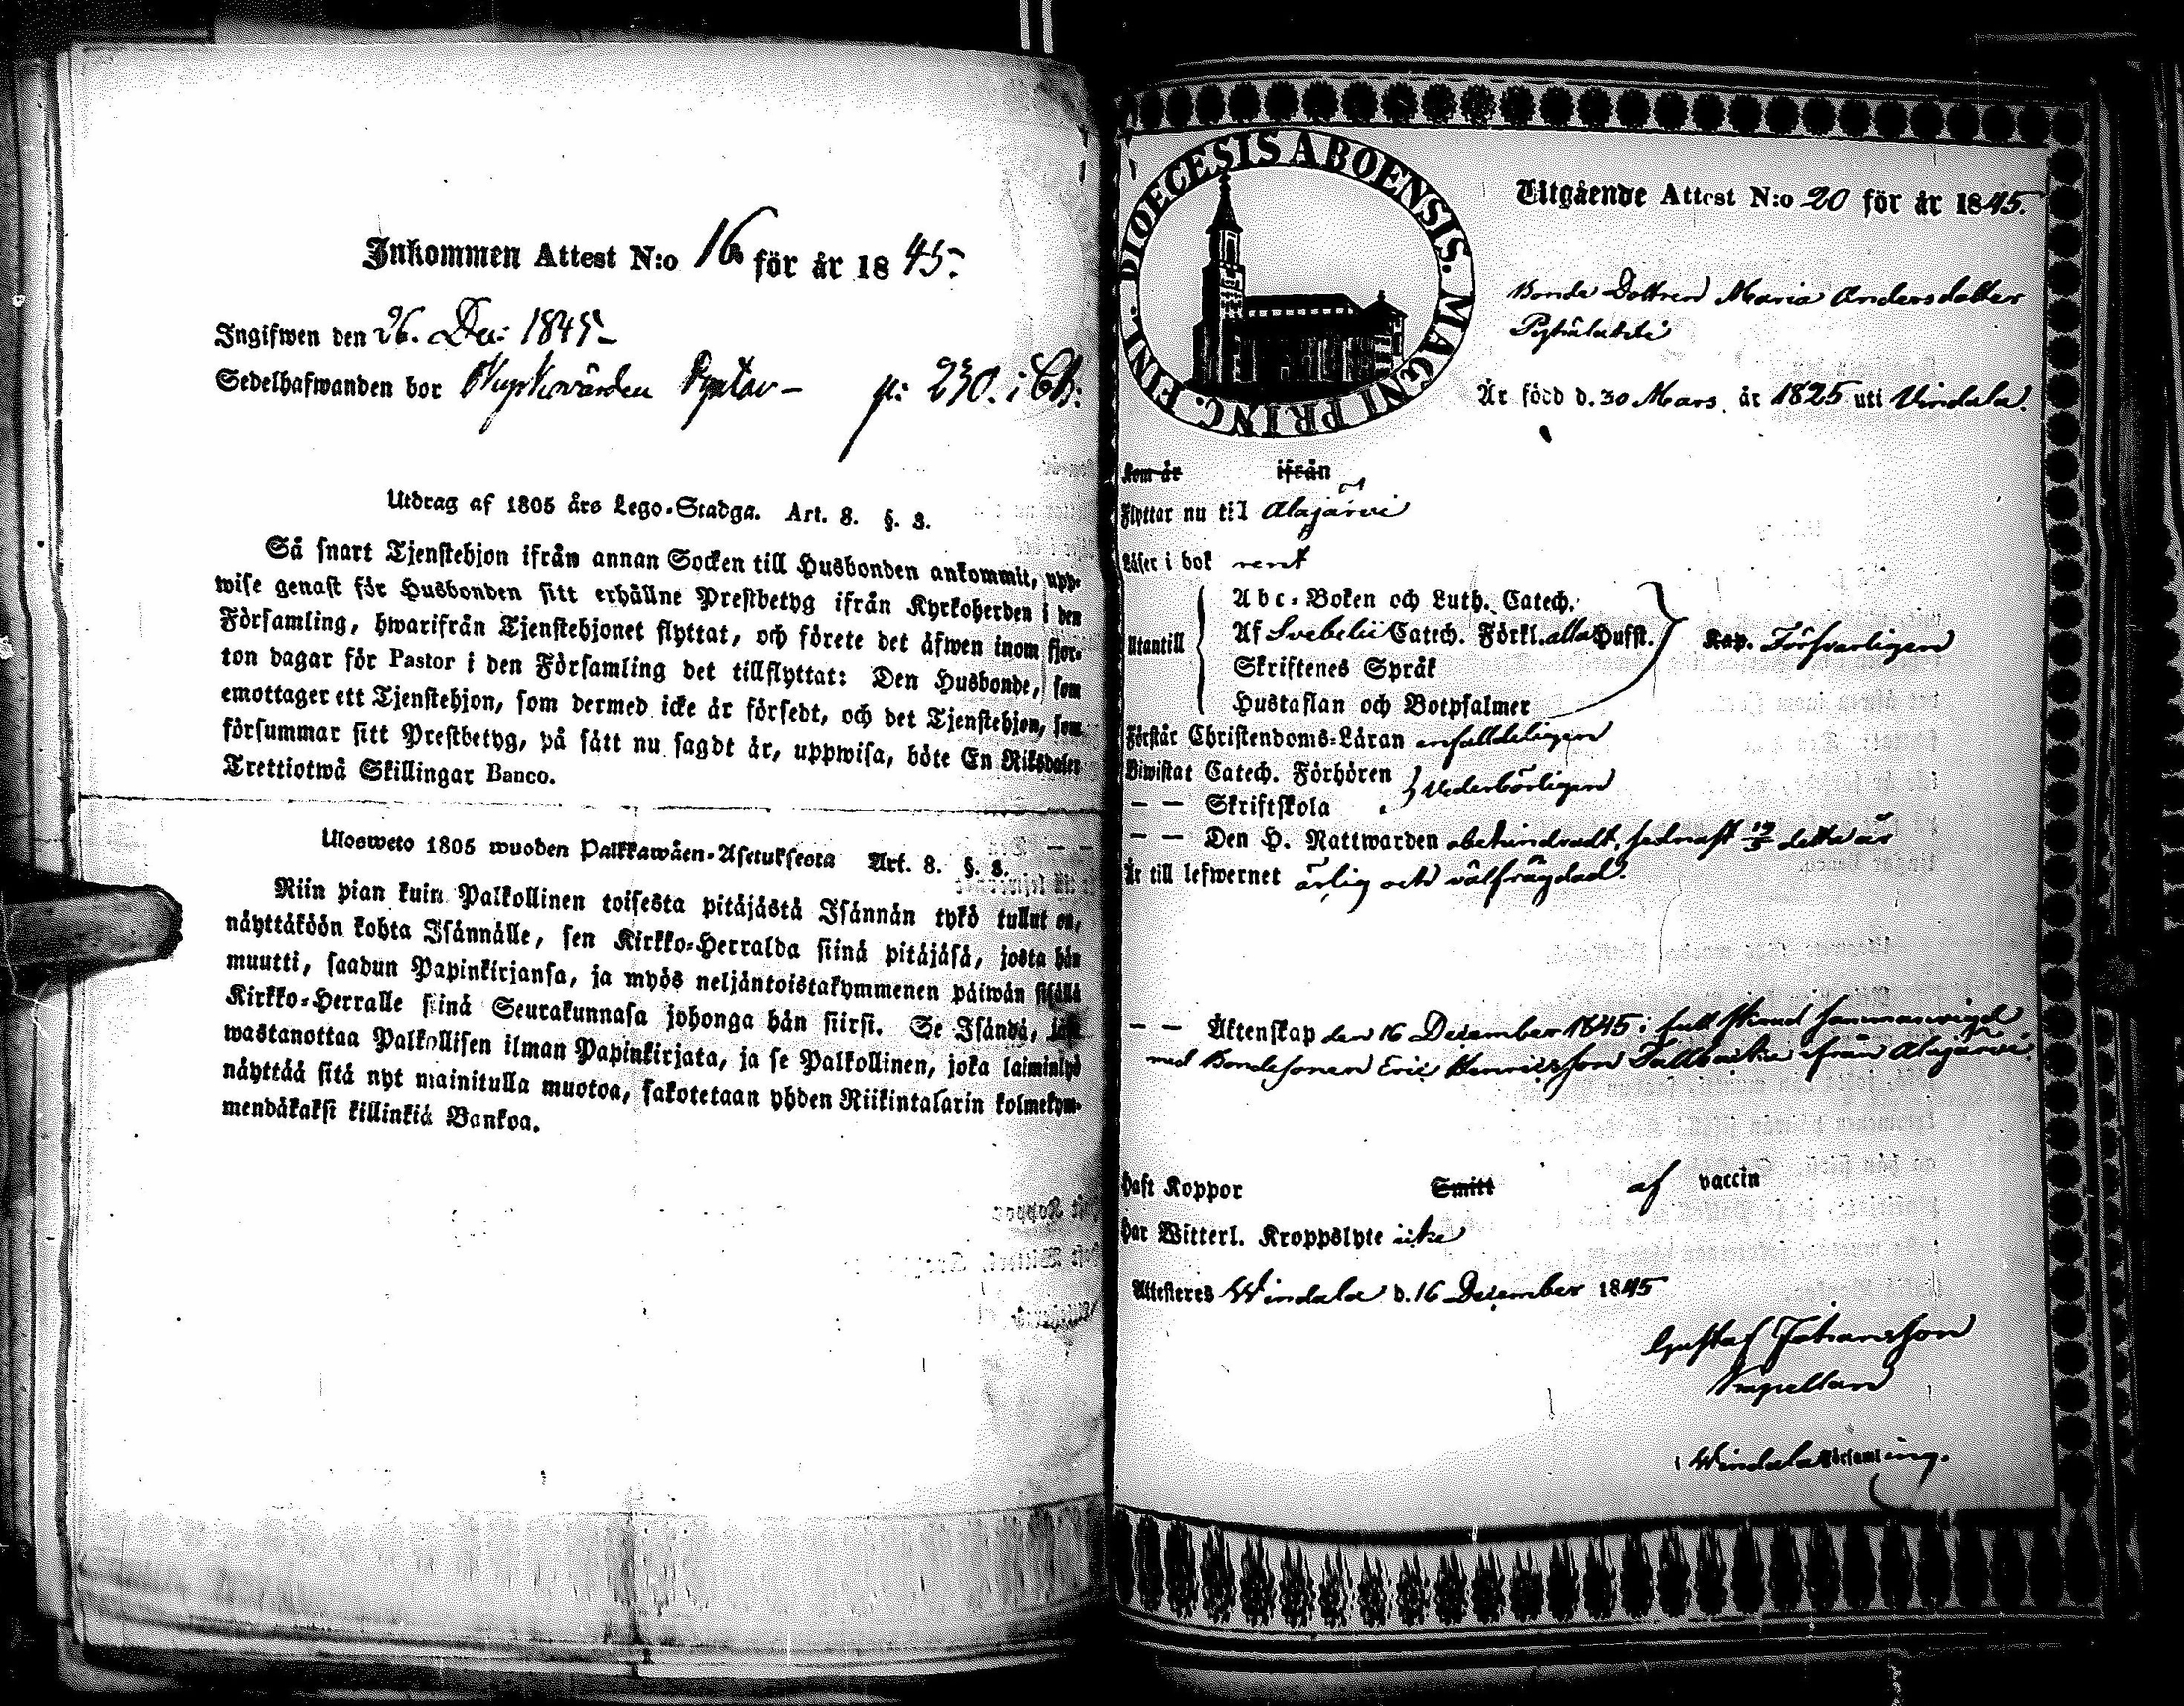 Inkommen Attest N:o 16 för år 1845.
Ingifwen den 26. Dec: 1845
Sedelhafwanden bor p: 230. i
Utdrag af 1805 års Lego-Stadga. Art. 8. §. 3.
Så snart Tjenstehjon ifrån annan Socken till Husbonden ankommit, upp-
wise genast för Husbonden sitt erhållne Prestbetyg ifrån Kyrkoherden i den
Församling, hwarifrån Tjenstehjonet flyttat, och förete det äfwen inom fjor-
ton dagar för Pastor i den Församling det tillflyttat: Den Husbonde, som
emottager ett Tjenstehjon, som dermed icke är försedt, och det Tjenstehjon, som
försummar sitt Prestbetyg, på sätt nu sagdt är, uppwisa, böte En Riksdaler
Trettiotwå Skillingar Banco.
Ulosweto 1805 wuoden Palkkawäen-Asetuksesta Art. 8. §. 3.
Niin pian kuin Palkollinen toisesta pitäjästä Isännän tykö tullut on,
näyttäköön kohta Isännälle, sen Kirkko-Herralda siinä pitäjäsä, josta hän
muutti, saadun Papinkirjansa, ja myös neljäntoistakymmenen päiwän sisällä
Kirkko-Herralle siinä Seurakunnasa johonga hän siirsi. Se Isändä, joka
wastanottaa Palkollisen ilman Papinkirjata, ja se Palkollinen, joka laiminlyö
näyttää sitä nyt mainitulla muotoa, sakotetaan yhden Riikintalarin kolmekym-
mendäkaksi killinkiä Bankoa.
DIOECESIS ABOENSIS. MAGNI PRINC. FINL.
Utgående Attest N:o 20 för år 1845.
Bonde Dottren Maria Andersdotter
Är född d. 30 Mars. år 1825 uti Vindala.
Kom år ifrån
Flyttar nu til Alajärvi
Läser i bok rent
Abc-Boken och Luth. Catech.
Utantill Af Svebelii Catech. Förkl. alla Hufst. Försvarligen
Skriftenes Språk
Hustaflan och Botpsalmer
Förstår Christendoms-Läran enfalldeligen
Biwistat Catech. Förhören Vederbörligen
— — Skriftskola
— — Den H. Nattwarden obehindradt, sednast detta år
Är till lefwernet ärlig och välfrägdad.
— — Äktenskap den 16 December 1845 i full Stånd sammanvigd
med Bondesonen Eric Henricsson ifrån Alajärvi.
Haft Koppor Smitt af vaccin
Har Witterl. Kroppslyte icke
Attesteres Windala d. 16 December 1845
Gustaf Johansson
Kapellan
i Windala Församling.